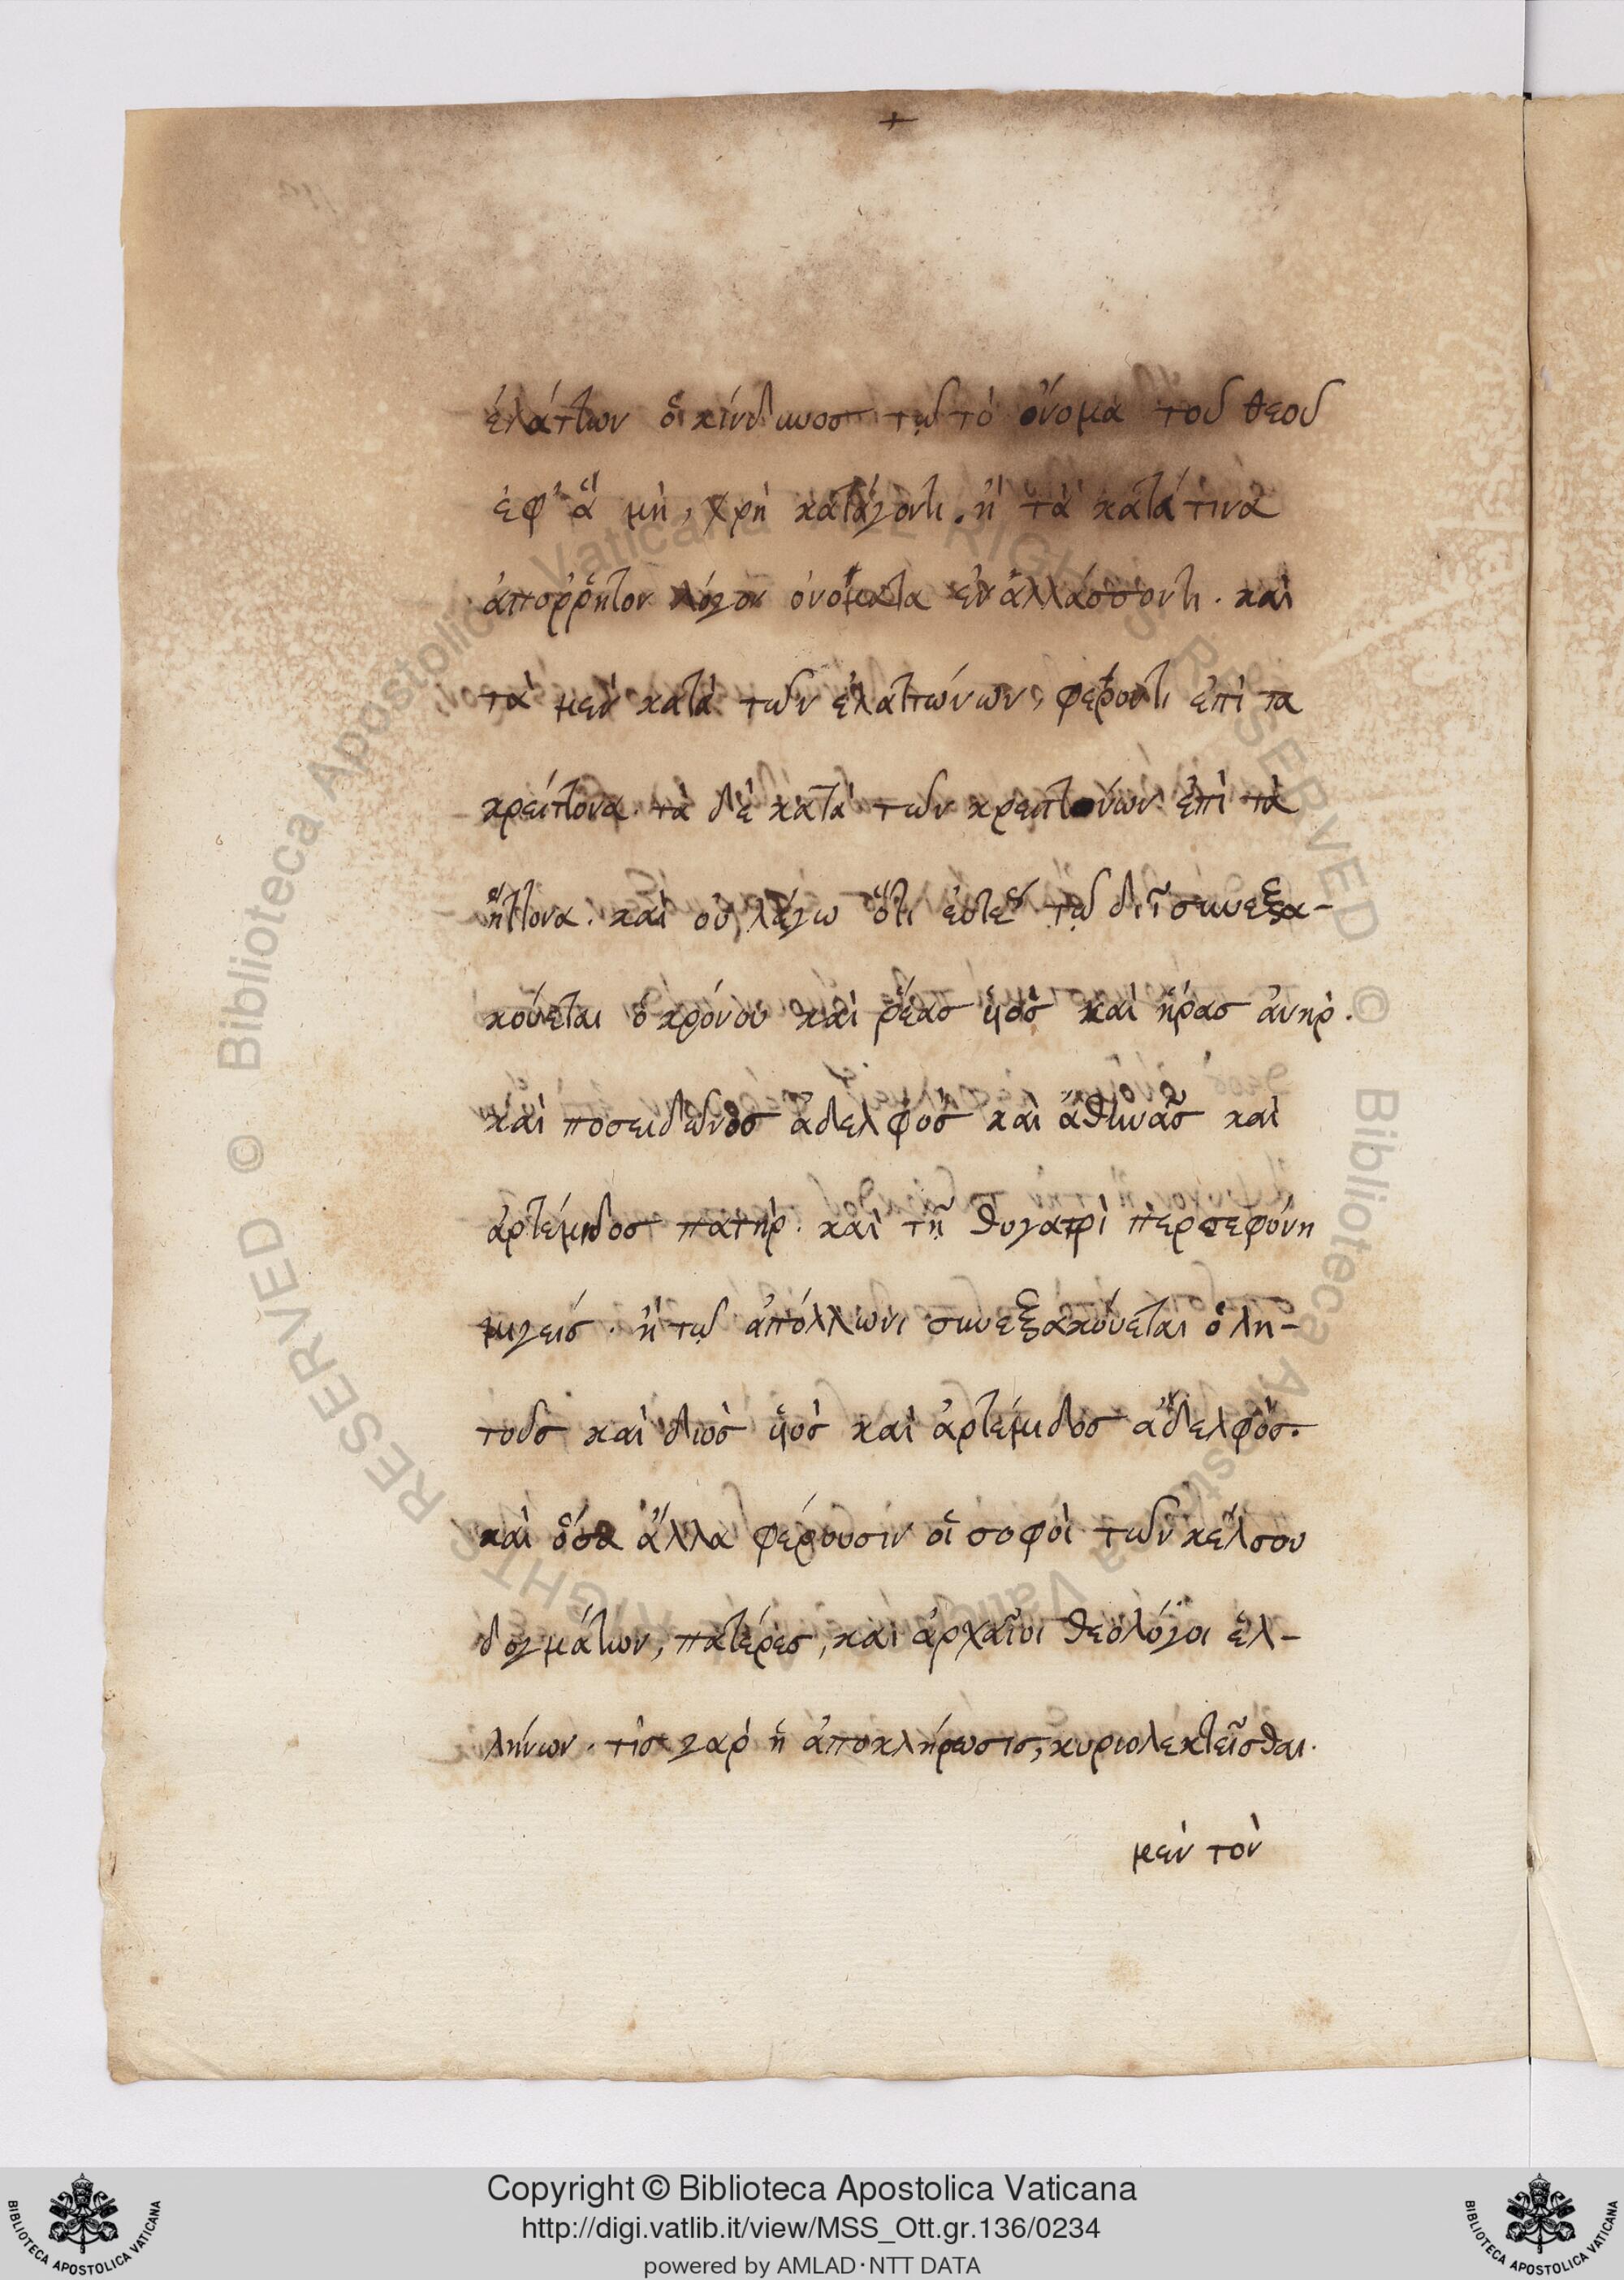 +
ἐλάττων ὁ κίνδυνος τῷ τὸ ὄνομα τοῦ θεοῦ
ἐφ' ἃ μὴ, χρὴ κατάγοντι. ἢ τὰ κατά τινα
ἀπόρρητον λόγον ὀνόματα ἐναλλάσσοντι. καὶ
τὰ μὲν κατὰ τῶν ἐλαττώνων, φέροντι ἐπὶ τα
κρείττονα. τὰ δὲ κατὰ τῶν κρειττόνων ἐπὶ τὰ
ἥττονα. καὶ οὐ λέγω ὅτι τῷ διῒ συνεξα-
κούεται ὁ κρόνου καὶ ῥέας ὑιὸς καὶ ἥρας ἀνηρ.
καὶ ποσειδῶνος ἀδελφὸς καὶ ἀθηνᾶς καὶ
ἀρτέμιδος πατὴρ. καὶ τῇ θυγατρὶ περσεφόνη
μιγεὶς. ἢ τῷ ἀπόλλωνι συνεξακούεται ὁ λη-
τοῦς καὶ διὸς ὑιὸς καὶ ἀρτέμιδος ἀδελφὸς.
καὶ ὅσα ἄλλα φέρουσιν οἱ σοφοὶ τῶν κέλσου
δογμάτων, πατέρες, καὶ ἀρχαῖοι θεολόγοι ἑλ-
λήνων. τίς γὰρ ἡ ἀποκλήρωσις, κυριολεκτεῖσθαι.
μὲν τὸν
Copyright © Biblioteca Apostolica Vaticana
http://digi.vatlib.it/view/MSS_Ott.gr.136/0234
powered by AMLAD·NTT DATA
BIBLIOTECA APOSTOLICA VATICANA
BIBLIOTECA APOSTOLICA VATICANA